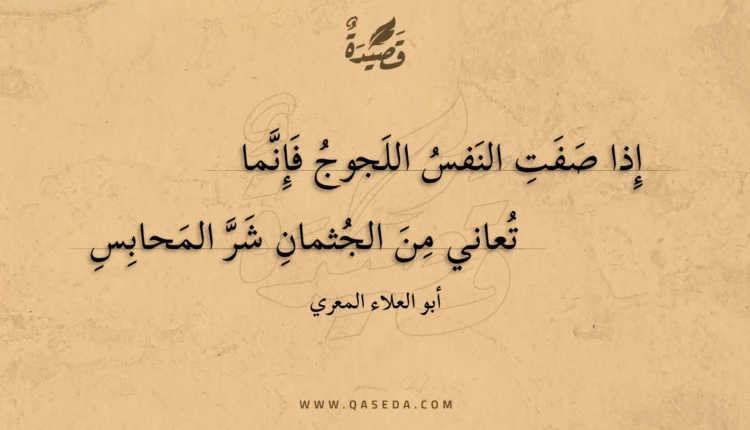 قَصِيْدَةٌ
إِذا صَفَتِ النَفسُ اللَجوجُ فَإِنَّما
تُعاني مِنَ الجُثمانِ شَرَّ المَحابِسِ
أبو العلاء المعري
WWW.QASEDA.COM